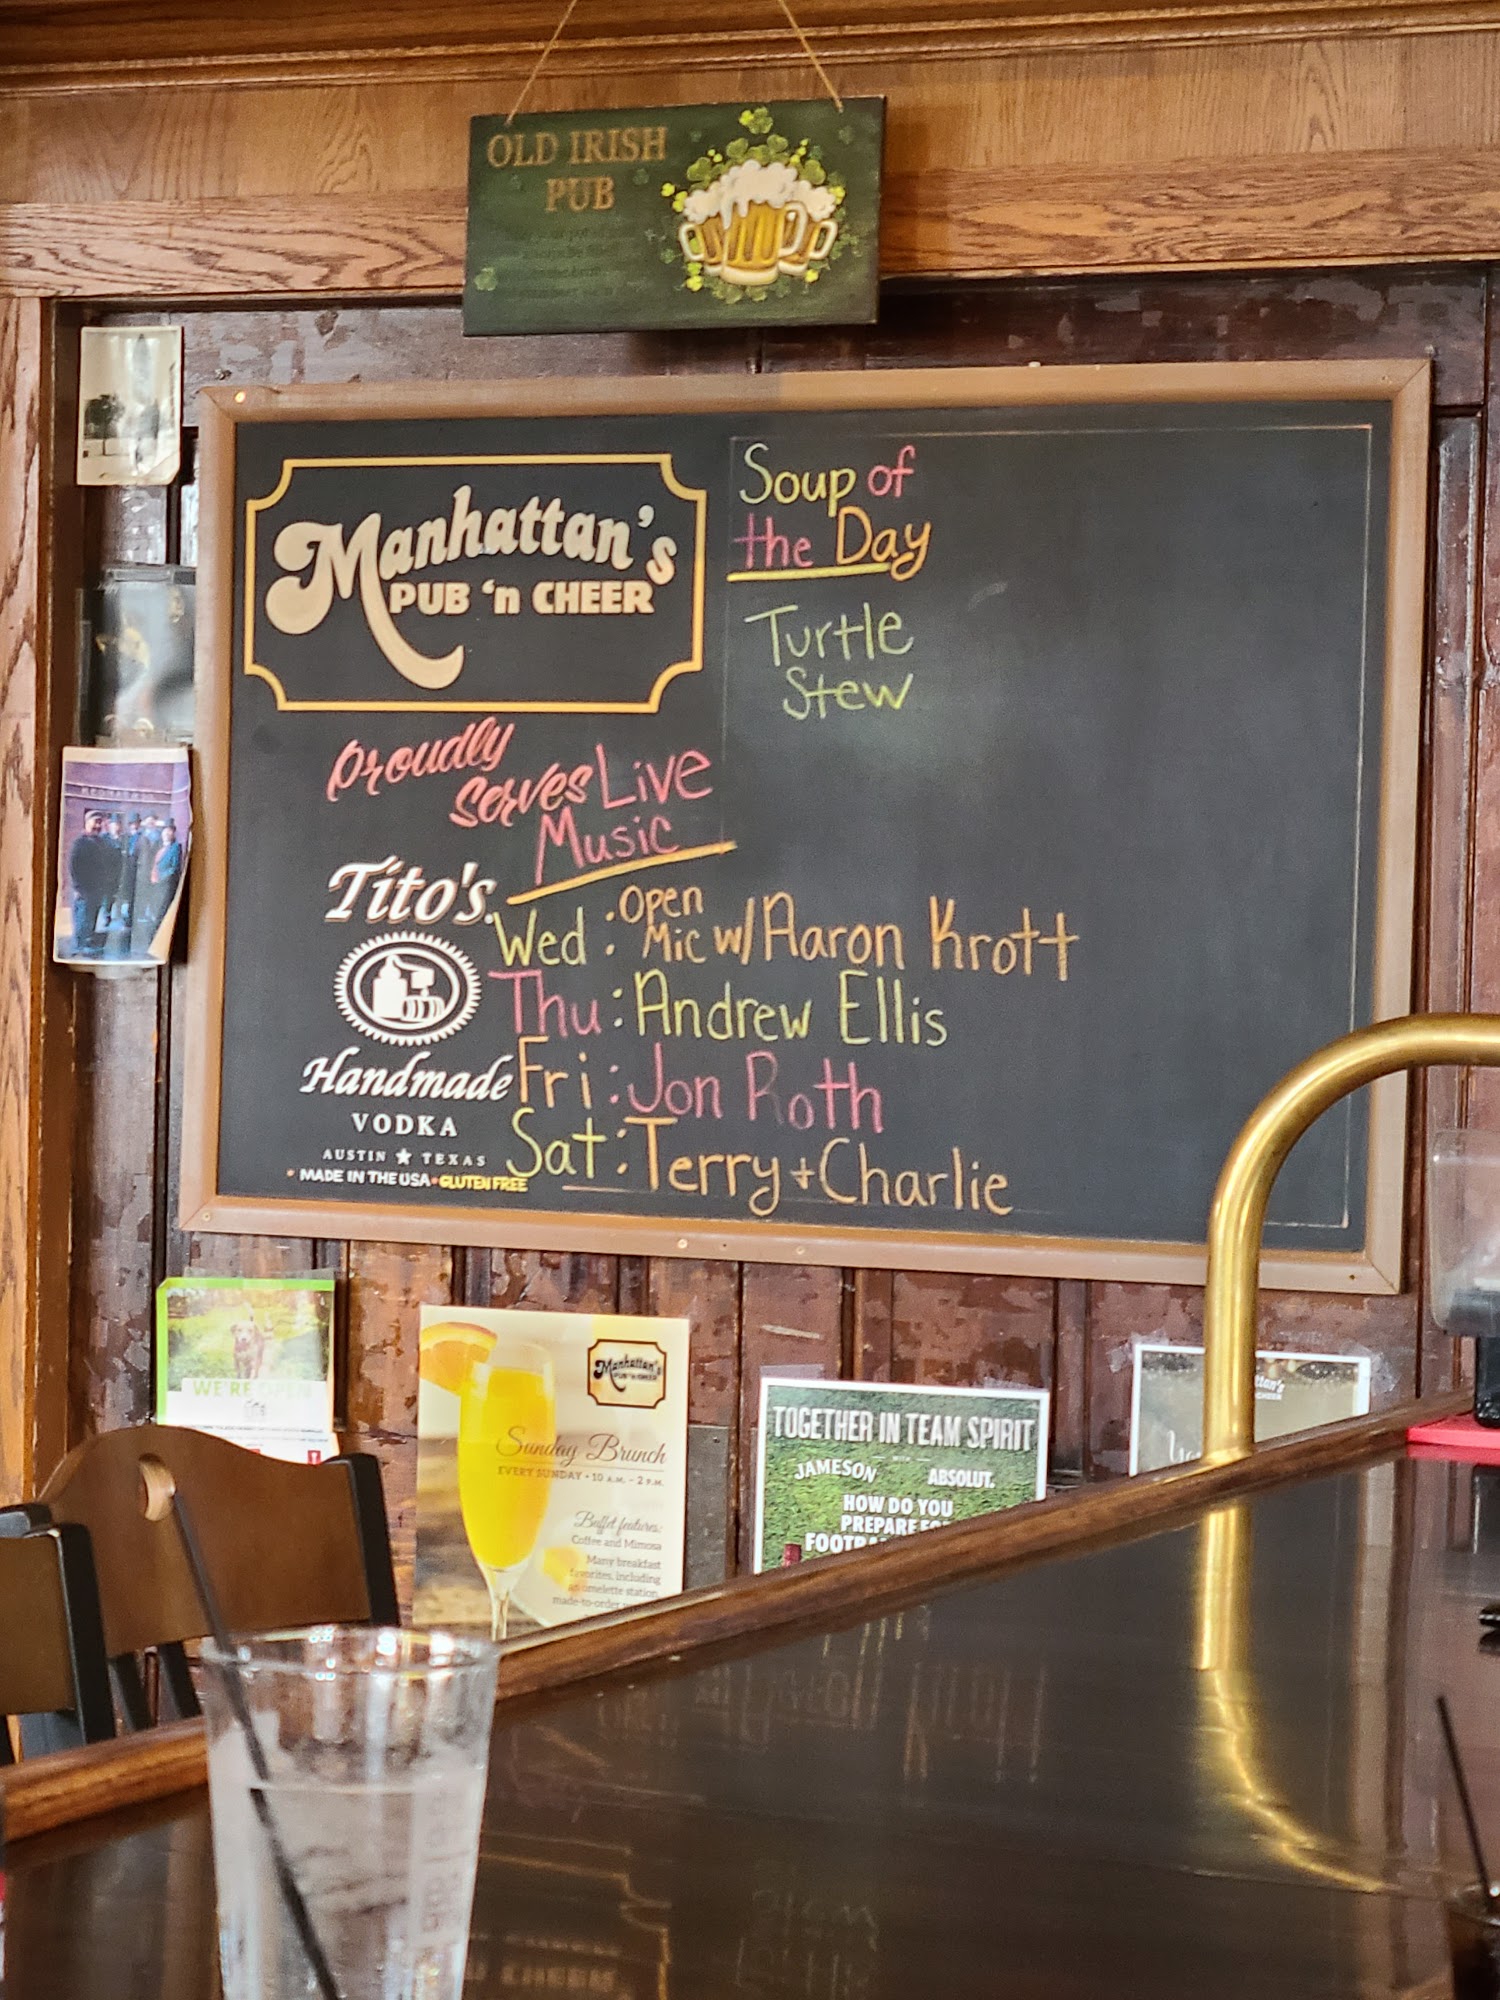 OLD IRISH
PUB
Manhattan's
PUB 'n CHEER
Soup of
the Day
Turtle
Stew
Proudly
Serves
Live
Music
Tito's
Handmade
VODKA
AUSTIN ★ TEXAS
• MADE IN THE USA • GLUTEN FREE
Wed : Open Mic w/ Aaron Krott
Thu : Andrew Ellis
Fri : Jon Roth
Sat : Terry + Charlie
WE'RE OPEN
Manhattan's
PUB 'n CHEER
Sunday Brunch
EVERY SUNDAY • 10 A.M. - 2 P.M.
Buffet features:
Coffee and Mimosa
Many breakfast
favorites, including
an omelette station,
made-to-order
TOGETHER IN TEAM SPIRIT
WITH
JAMESON ABSOLUT.
HOW DO YOU
PREPARE